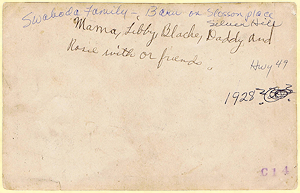 Swaboda family - Barn on Slisson place
Silver Hill
Mama, Libby, Blache, Daddy and
Rosie with or friends.
Hwy 49
1928?
C14